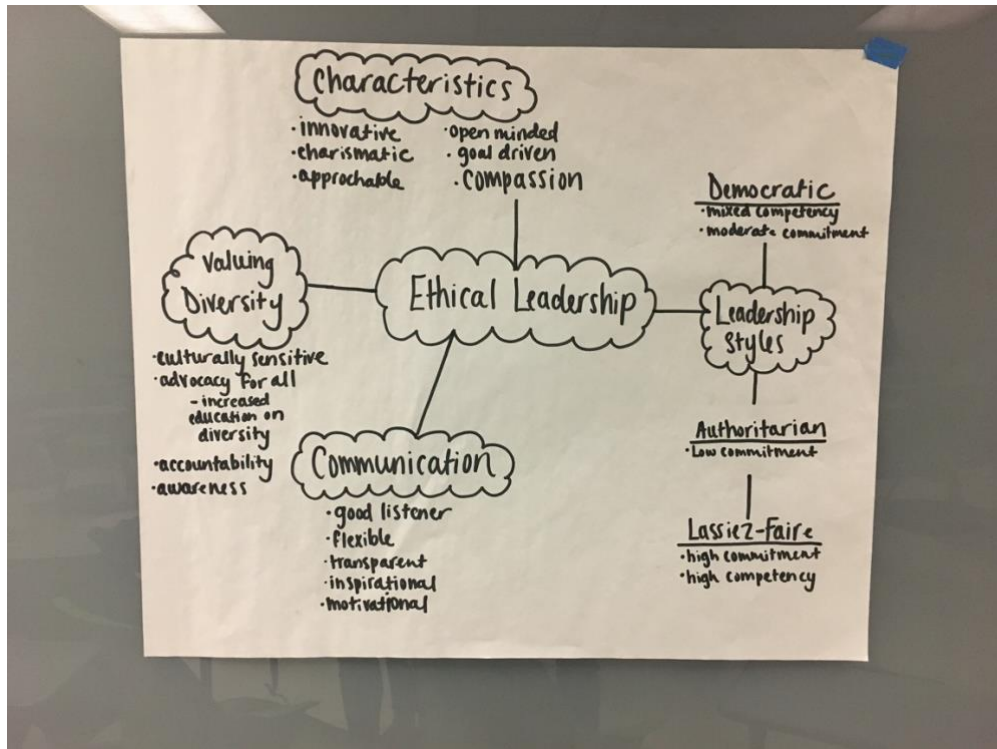 Characteristics
·innovative
·charismatic
·approchable
·open minded
·goal driven
·compassion
Valuing
Diversity
·culturally sensitive
·advocacy for all
-increased
education on
diversity
·accountability
·awareness
Ethical Leadership
Communication
·good listener
·flexible
·transparent
·inspirational
·motivational
Leadership
Styles
Democratic
·mixed competency
·moderate commitment
Authoritarian
·Low commitment
Lassiez-Faire
·high commitment
·high competency